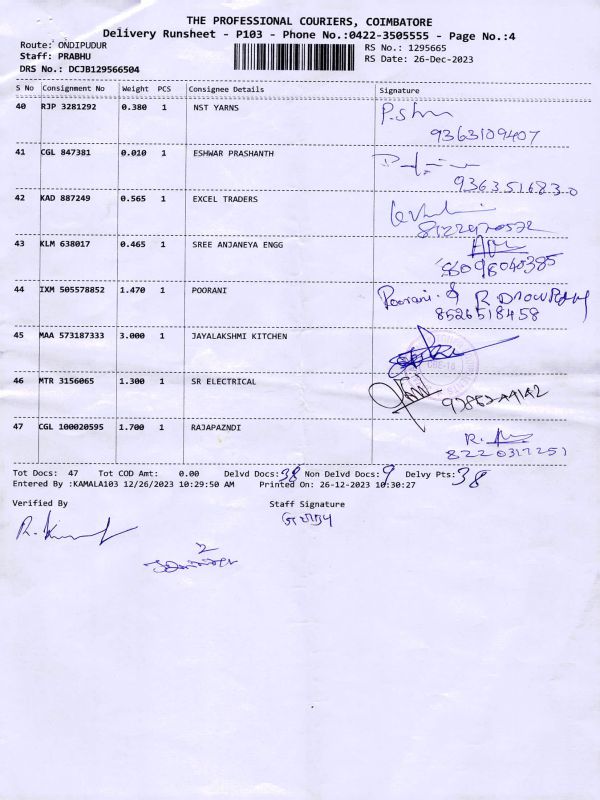 THE PROFESSIONAL COURIERS, COIMBATORE
Delivery Runsheet - P103 - Phone No.:0422-3505555 - Page No.:4
Route: ONDIPUDUR RS No.: 1295665
Staff: PRABHU RS Date: 26-Dec-2023
DRS No.: DCJB129566504
S No Consignment No Weight PCS Consignee Details Signature
40 RJP 3281292 0.380 1 NST YARNS
9363109407
41 CGL 847381 0.010 1 ESHWAR PRASHANTH
9363516830
42 KAD 887249 0.565 1 EXCEL TRADERS
43 KLM 638017 0.465 1 SREE ANJANEYA ENGG
86098040385
44 IXM 505578852 1.470 1 POORANI Poorani. R
8526518458
45 MAA 573187333 3.000 1 JAYALAKSHMI KITCHEN
46 MTR 3156065 1.300 1 SR ELECTRICAL
47 CGL 100020595 1.700 1 RAJAPAZNDI R.
8220317251
Tot Docs: 47 Tot COD Amt: 0.00 Delvd Docs: 38 Non Delvd Docs: 9 Delvy Pts: 38
Entered By :KAMALA103 12/26/2023 10:29:50 AM Printed On: 26-12-2023 10:30:27
Verified By Staff Signature
R.
2